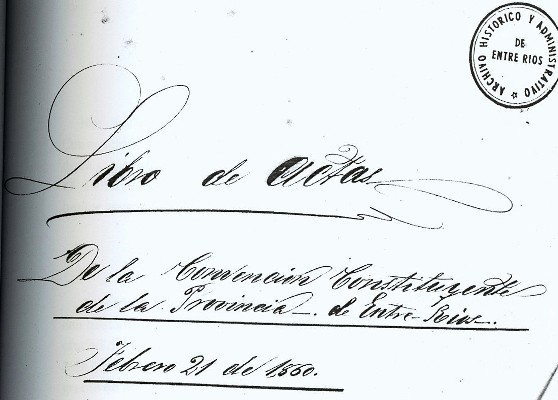 ARCHIVO HISTORICO Y ADMINISTRATIVO
DE
ENTRE RIOS
Libro de Actas
De la Convencion Constituyente
de la Provincia de Entre-Rios.
Febrero 21 de 1860.